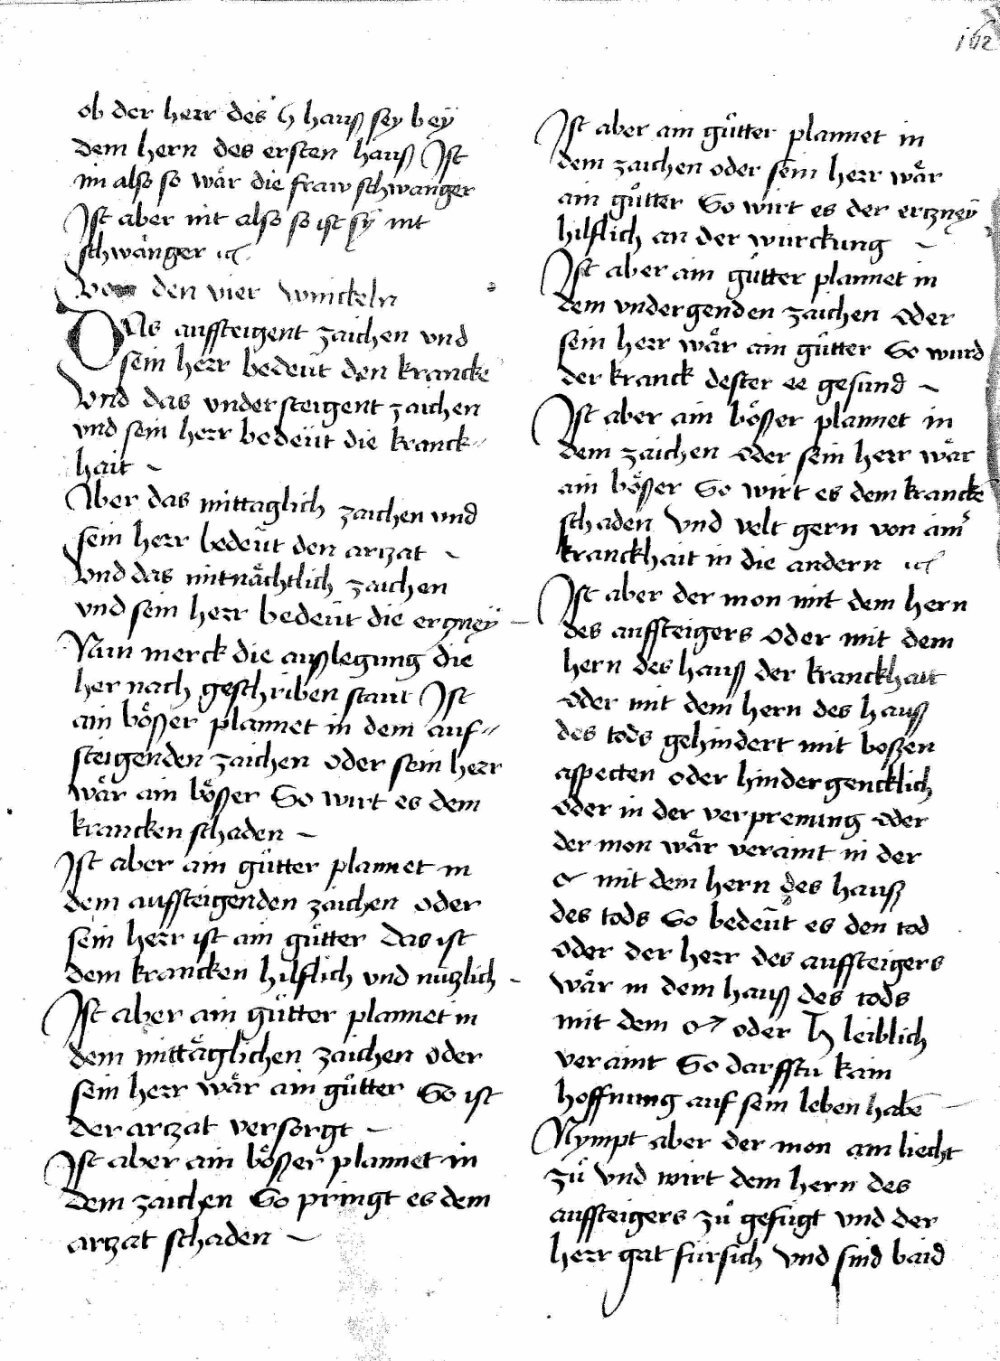 162
ob der herr des 5 hauß sey bey
dem hern des ersten hauß Ist
im also so wår die fraw schwanger
Ist aber nit also so ist sÿ nit
schwånger
Von den vier winckeln
DAs auffsteigent zaichen vnd
sein herr bedeŭt den krancke
Vnd das vndersteigent zaichen
vnd sein herr bedeŭt die kranck〃
hait ~
Aber das mittaglich zaichen vnd
sein herr bedeŭt den artzat ~
Vnd das mitnåchtlich zaichen
vnd sein herr bedeŭt die ertzneÿ –
Nun merck die außlegung die
her nach geschriben staut Ist
ain bo᷎ßer plannet in dem auf〃
steigenden zaichen oder sein herr
wår ain bo᷎ßer So wirt es dem
krancken schaden ~
Ist aber ain gůtter plannet in
dem auffsteigenden zaichen oder
sein herr ist ain gůtter das ist
dem krancken hilflich vnd nutzlich –
Ist aber ain gůtter plannet in
dem mittåglichen zaichen oder
sein herr wår ain gůtter So ist
der artzat versorgt ~
Ist aber ain bo᷎ßer plannet in
dem zaichen So pringt es dem
artzat schaden ~
Ist aber ain gůtter plannet in
dem zaichen oder sein herr wår
ain gůtter So wirt es der ertzneÿ
hilflich an der wurckung ~
Ist aber ain gůtter plannet in
dem vndergenden zaichen oder
sein herr wår ain gůtter So wurd
der kranck dester ee gesund ~
Ist aber ain bo᷎ßer plannet in
dem zaichen oder sein herr wår
ain bo᷎ßer So wirt es dem krancke
schaden Vnd velt gern von ainr̄
kranckhait in die andern
Ist aber der mon mit dem hern
des auffsteigers oder mit dem
hern des hauß der kranckhait
oder mit dem hern des hauß
des tods gehindert mit boßen
aspecten oder hindergencklich
oder in der verprenung oder
der mon wår veraint in der
☌ mit dem hern des hauß
des tods So bedeŭt es den tod
oder der herr des auffsteigers
wår in dem hauß des tods
mit dem ♂ oder ♄ leiblich
veraint So darfftu kain
hoffnung auf sein leben habē –
Nympt aber der mon am liecht
zů vnd wirt dem hern des
auffsteigers zů gefŭgt vnd der
herr gat fŭrsich Vnd sind baid